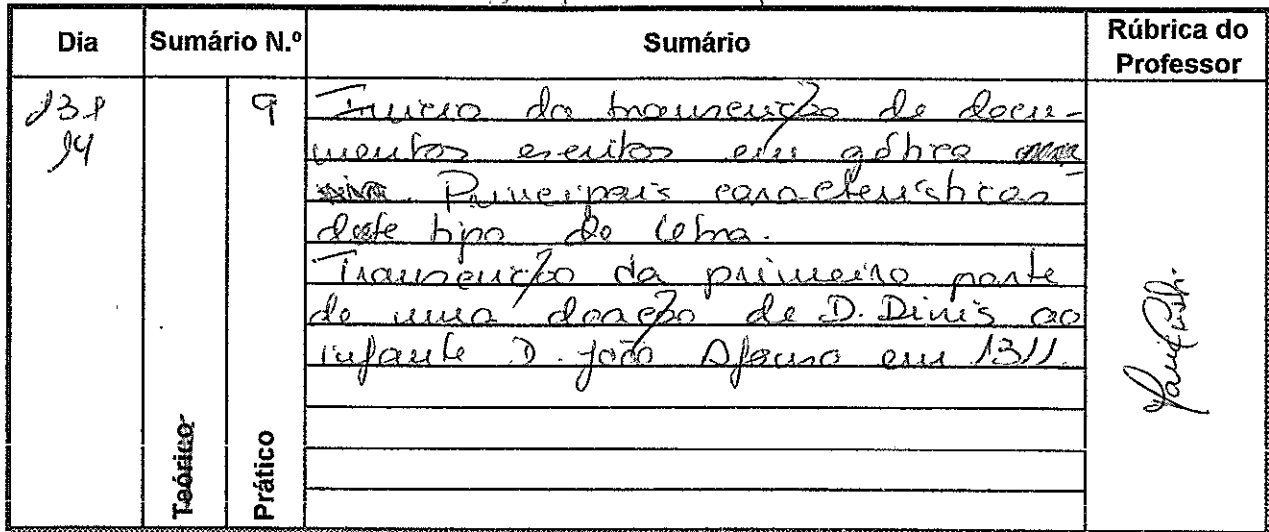 Dia Sumário N.º Sumário Rúbrica do Professor
9 Início da transcrição de docu-
mentos escritos em gótica
Principais características
deste tipo de letra.
Transcrição da primeira parte
de uma doação de D. Dinis ao
infante D. João Afonso em 1311.
Teórico
Prático